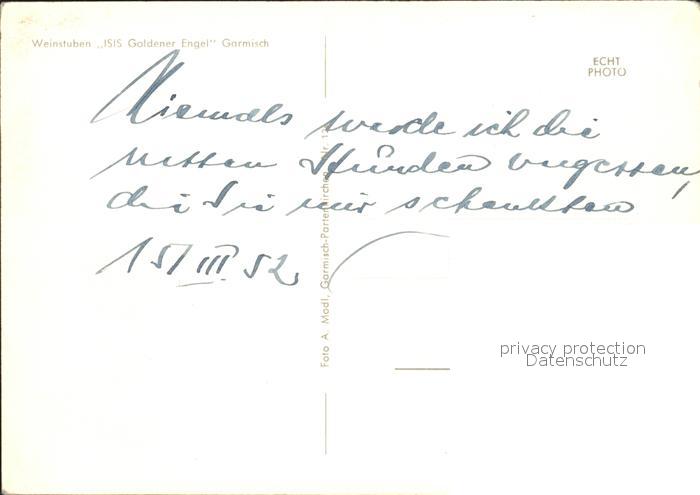 Weinstuben „ISIS Goldener Engel" Garmisch
ECHT
PHOTO
Niemals werde ich die
netten Stunden vergessen,
die Sie mir schenkten
15/III.52.
Foto A. Modl, Garmisch-Partenkirchen
privacy protection
Datenschutz